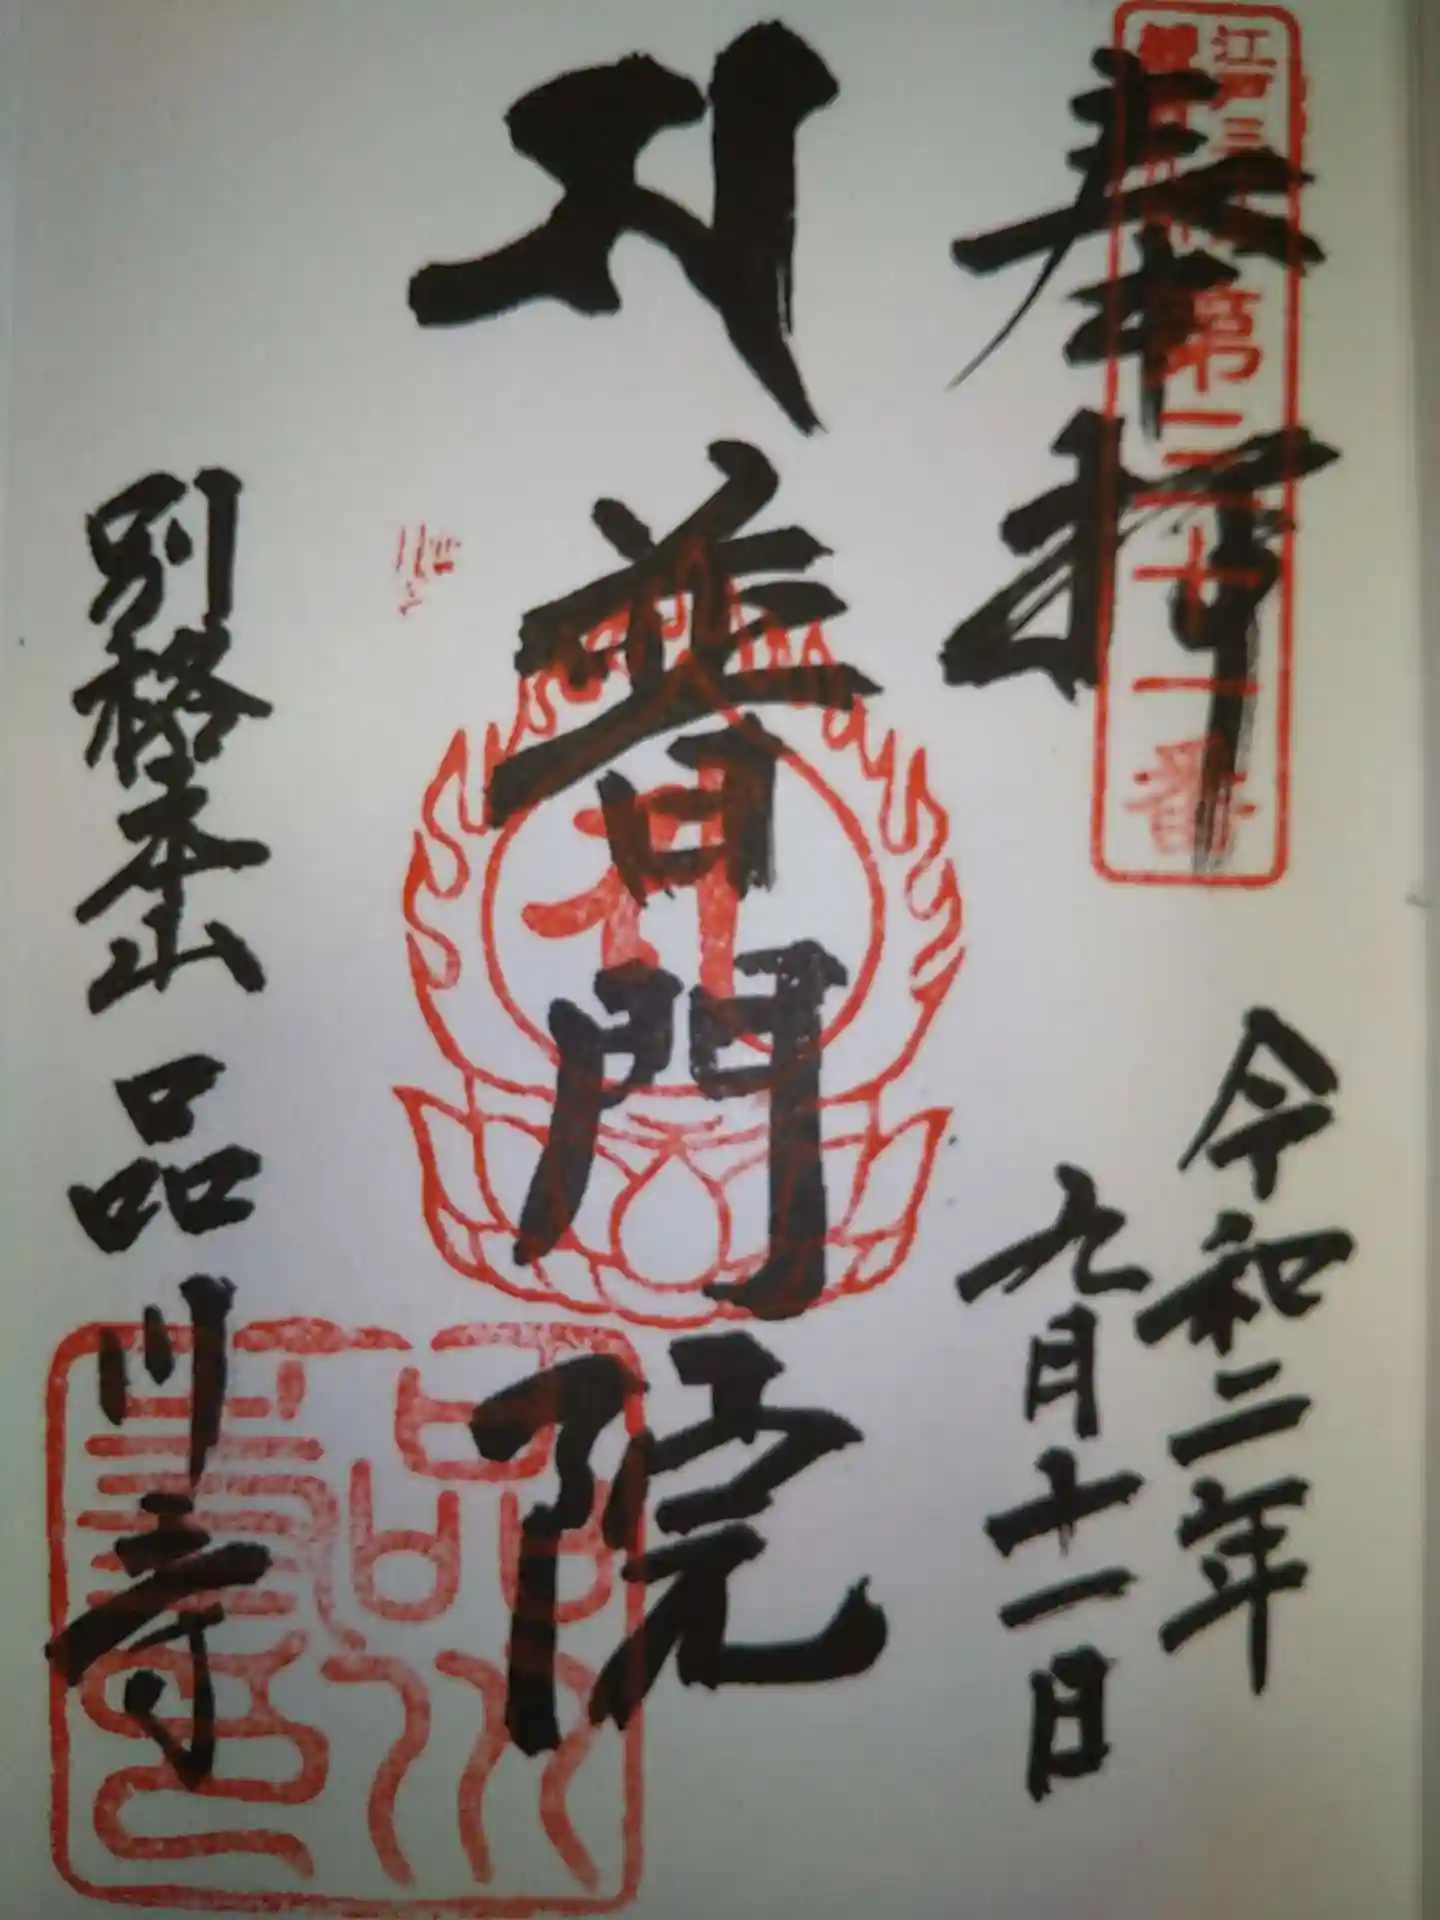 江戸三十三
観音札所第三十一番
奉拝
令和二年
九月十一日
普門院
別格本山 品川寺